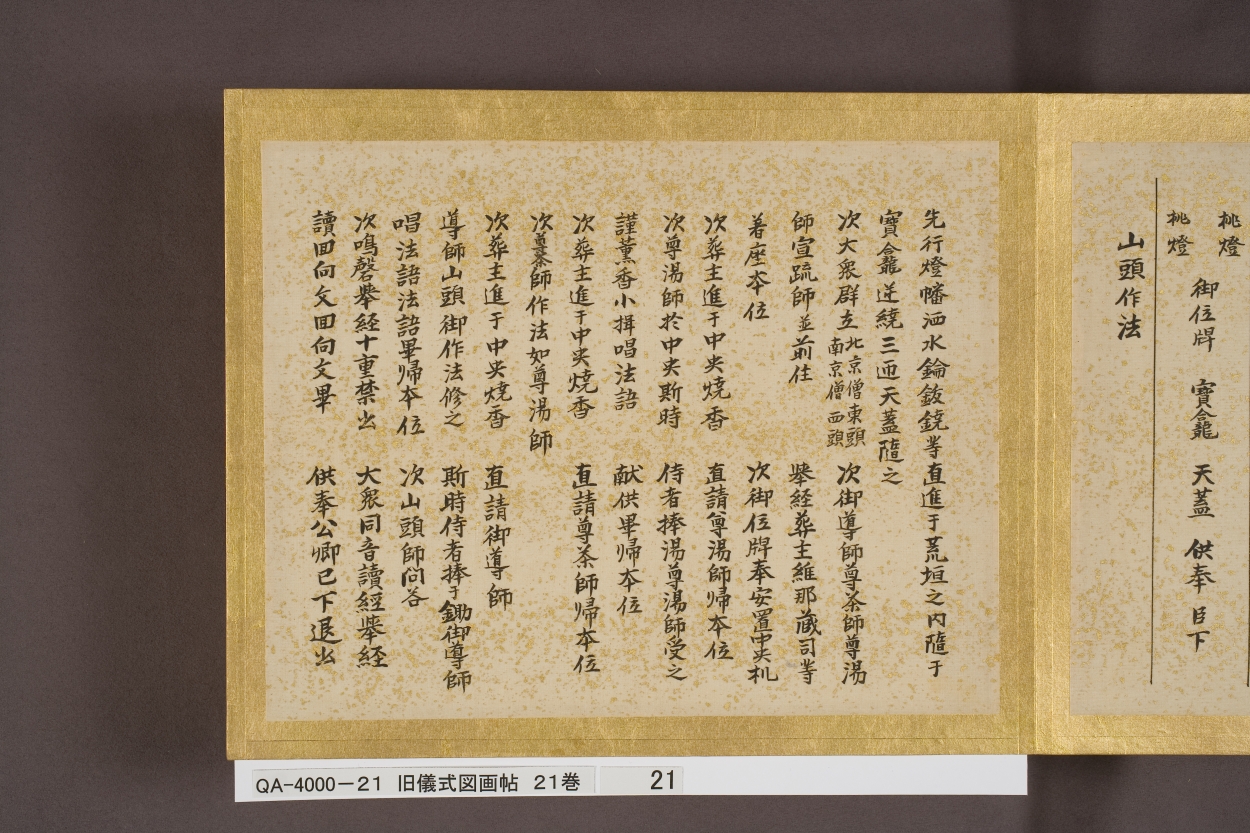 桃燈
桃燈
御位牌 寶龕 天蓋 供奉 臣下
山頭作法
先行燈幡洒水鑰鈸鐃等直進于荒垣之内隨于
寶龕迸繞三匝天蓋隨之
次大衆群立 北京僧東頭 南京僧西頭 次御導師尊茶師尊湯
師宣疏師並前住 擧経葬主維那蔵司等
着座本位 次御位牌奉安置中央机
次葬主進于中央焼香 直請尊湯師帰本位
次尊湯師於中央斯時 侍者捧湯尊湯師受之
謹薫香小揖唱法語 献供畢帰本位
次葬主進于中央焼香 直請尊茶師帰本位
次奠茶師作法如尊湯師
次葬主進于中央焼香 直請御導師
導師山頭御作法修之 斯時侍者捧于鋤御導師
唱法語法語畢帰本位 次山頭師问答
次鳴磬擧経十重禁出 大衆同音讀經擧経
讀回向文回向文畢 供奉公卿已下退出
QA-4000-21 旧儀式図画帖 21巻 21